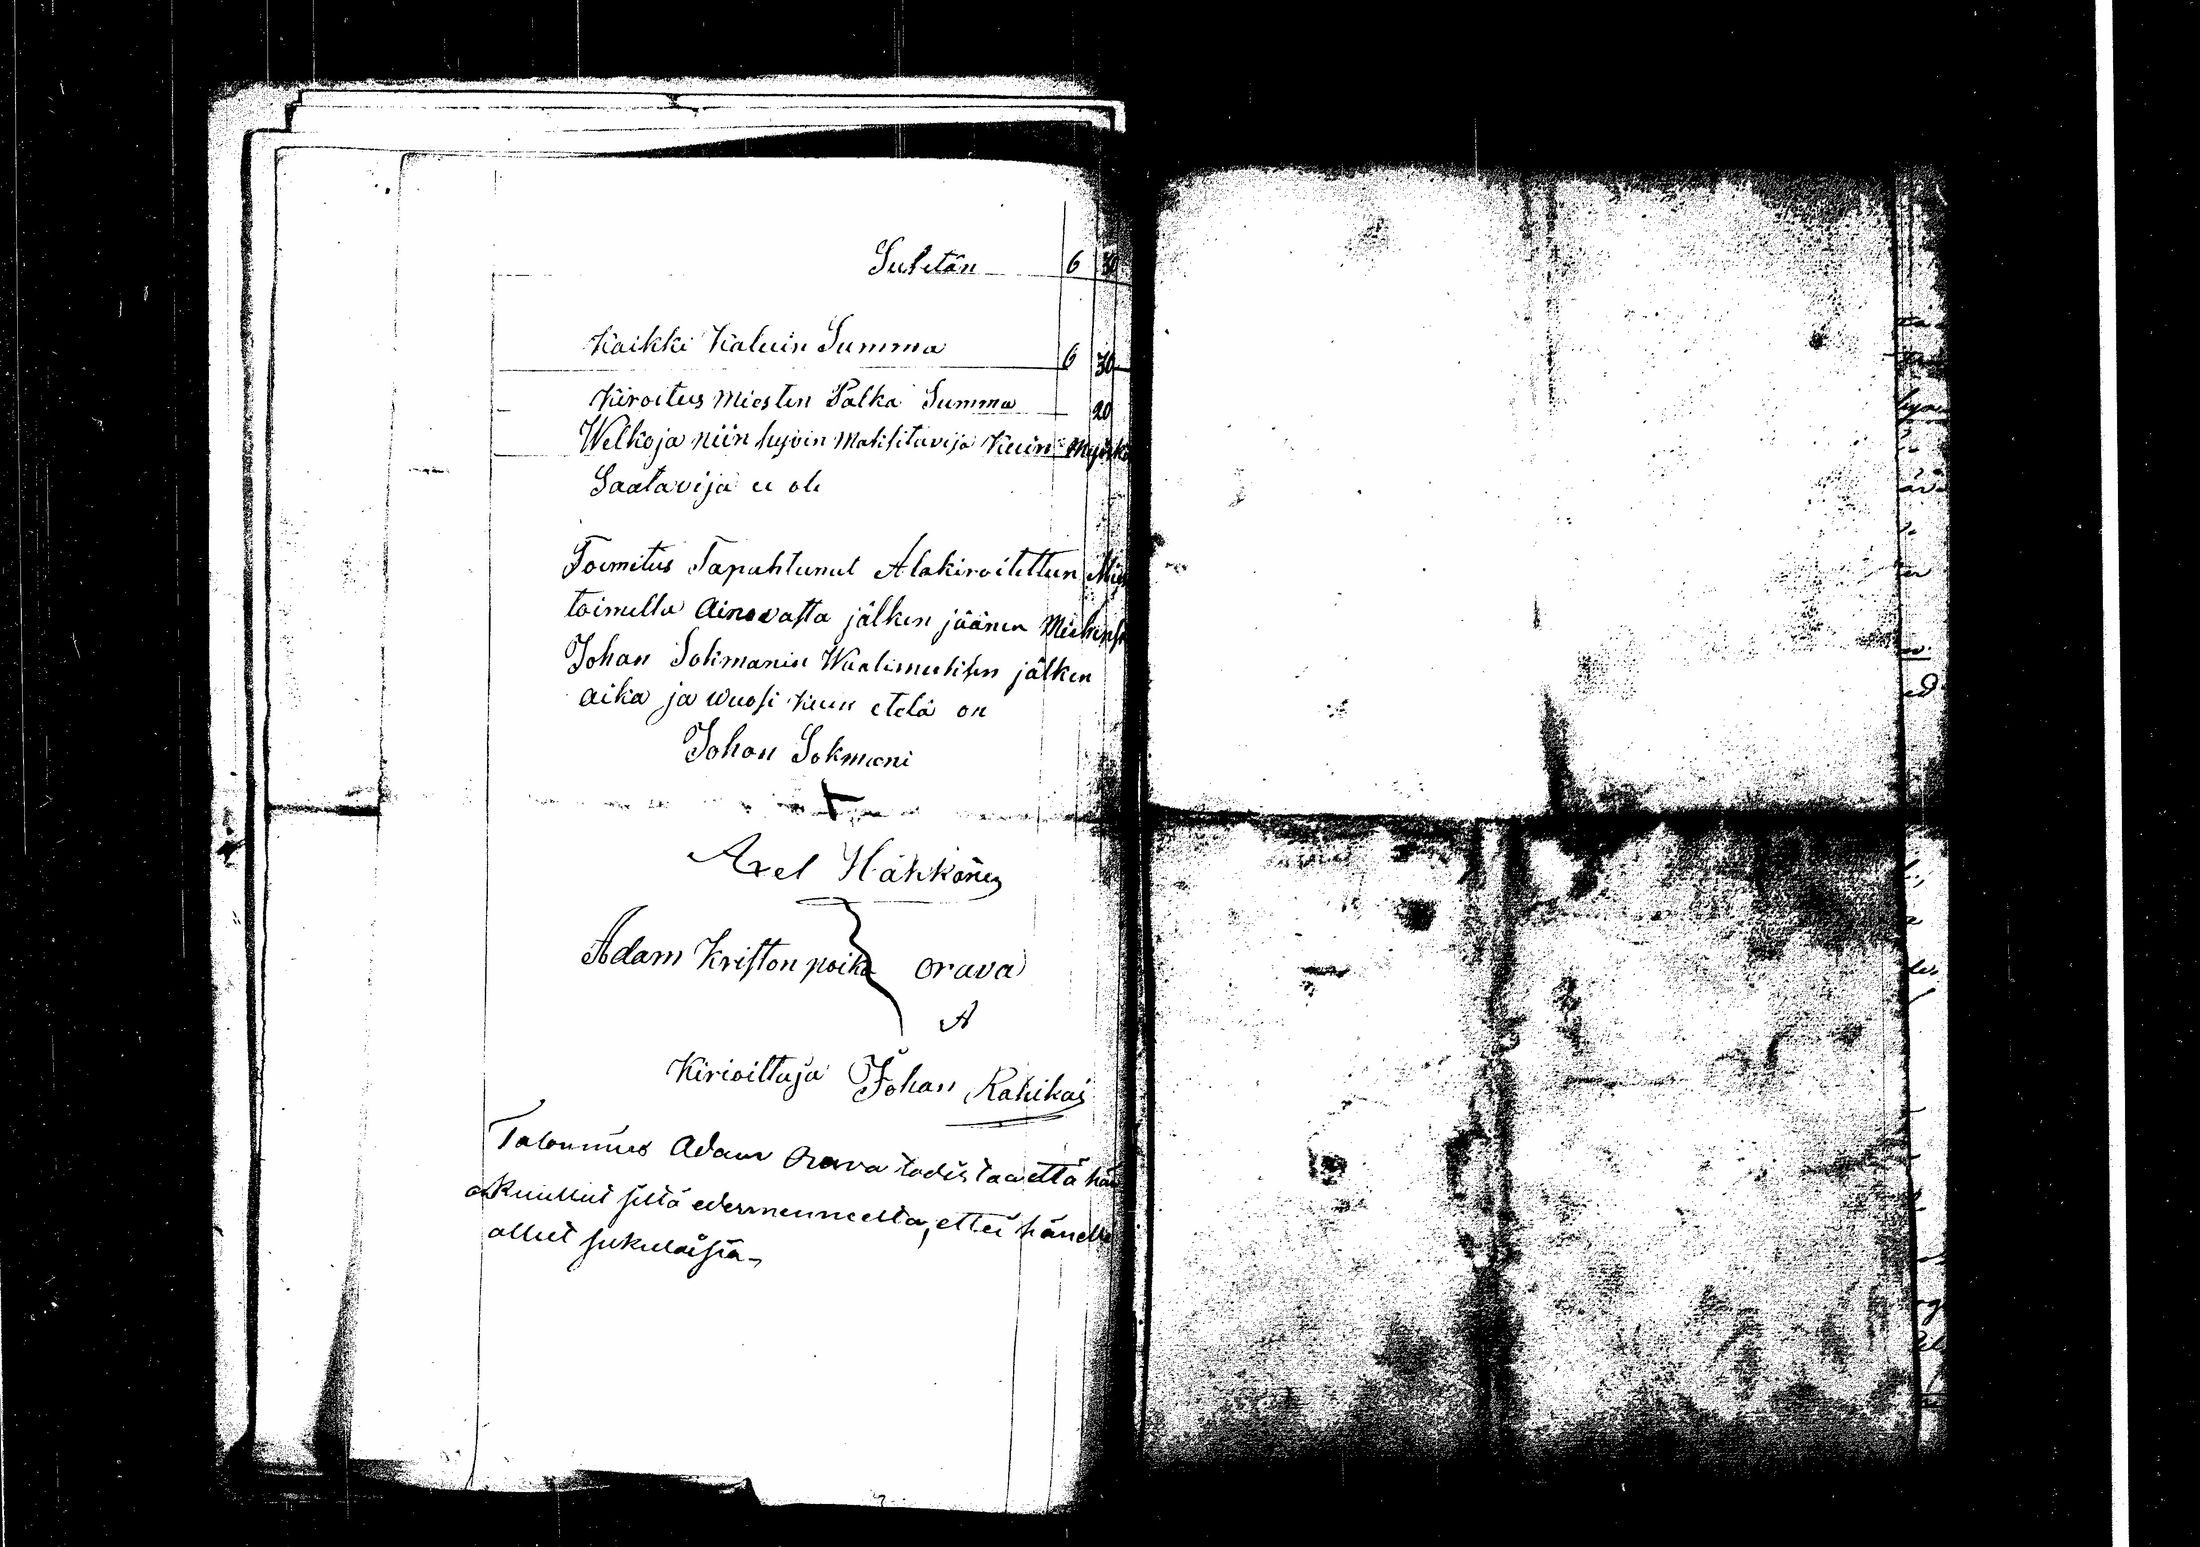 Suhetän 6 30
Kaikki Kaluin Summa 6 30
Kiroitus Miesten Palka Summa 20
Welkoja niin hyvin Makhtavija Kuin Myös
Saatavija ei ole
Toimitus Tapahtunut Alakiroitettun
toimella Ainovasta jälken jäänen
Johan Sokmanin Waalimuksen jälken
aika ja wuosi kuin etelä on
Johan Sokmani
Axel Häkkönen
Adam Kriston poika orava
A
Kirioittaja Johan
Talonmies Adam Orava todistaa että hän
on Kuullut siltä edesmenneeltä, ettei hänellä
ollut sukulaisia